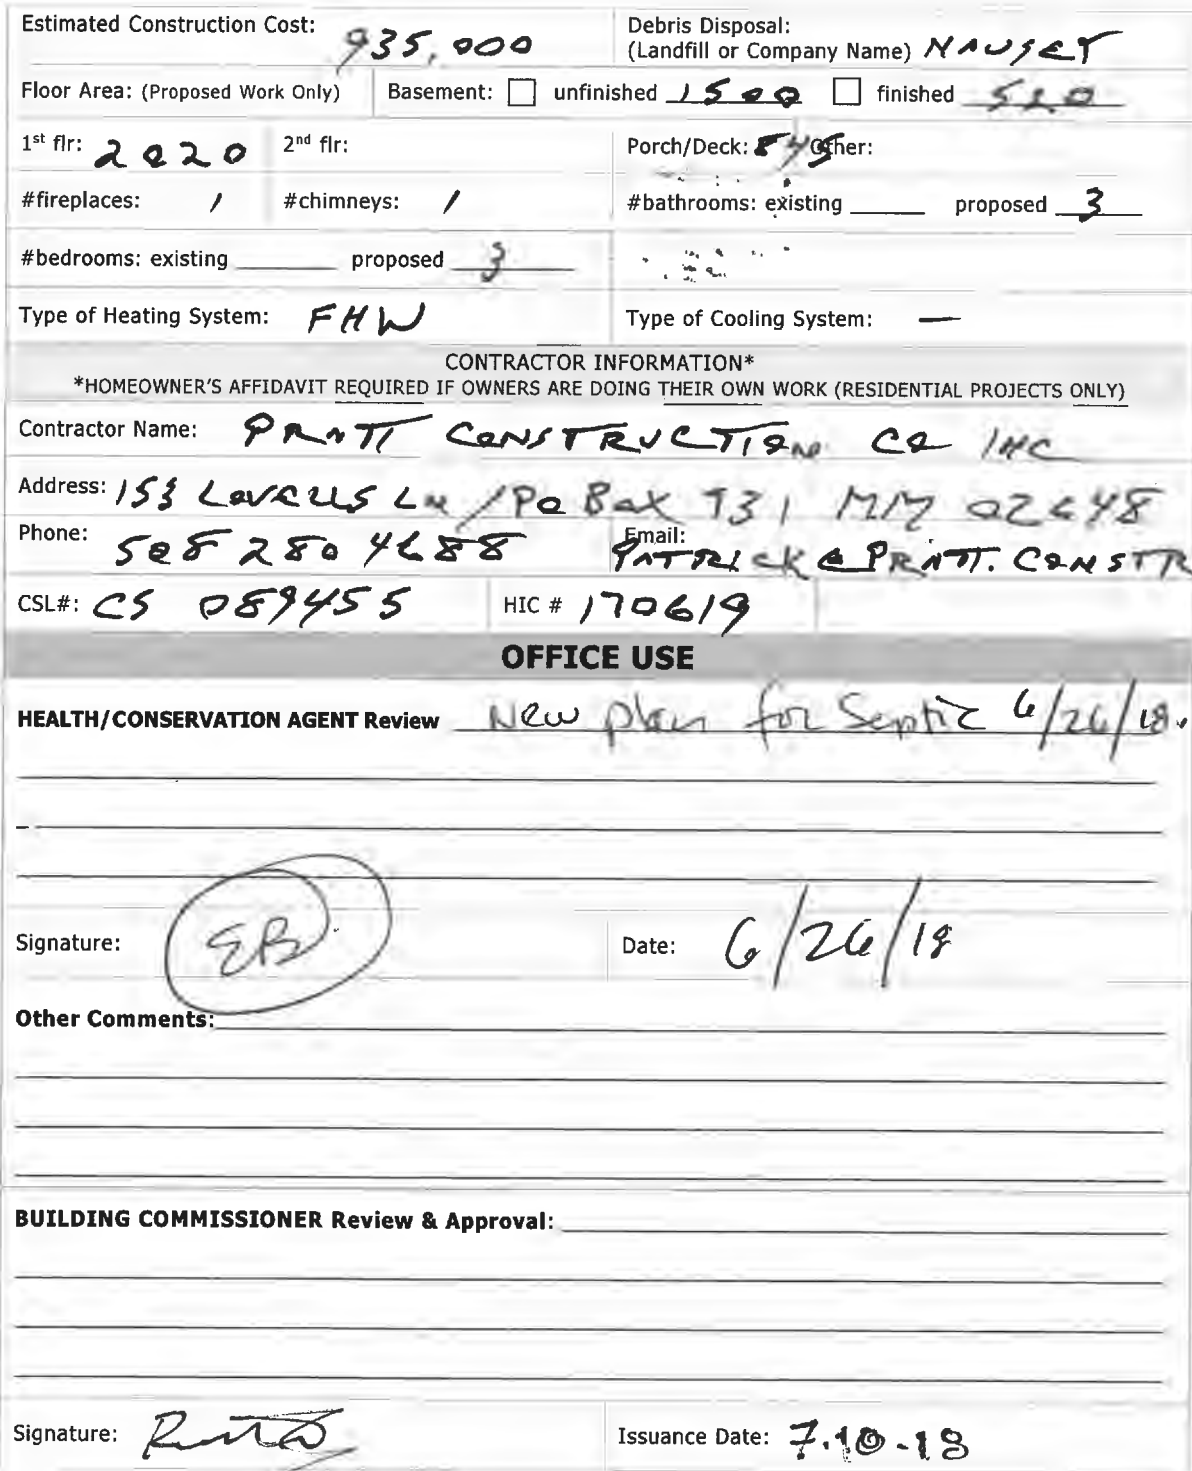 Estimated Construction Cost: 935,000 Debris Disposal: (Landfill or Company Name) NAUSET
Floor Area: (Proposed Work Only) Basement: ☐ unfinished 1500 ☐ finished 520
1st flr: 2020 2nd flr: Porch/Deck: 845 Other:
#fireplaces: 1 #chimneys: 1 #bathrooms: existing proposed 3
#bedrooms: existing proposed 3
Type of Heating System: FHW Type of Cooling System: —
CONTRACTOR INFORMATION*
*HOMEOWNER'S AFFIDAVIT REQUIRED IF OWNERS ARE DOING THEIR OWN WORK (RESIDENTIAL PROJECTS ONLY)
Contractor Name: PRATT CONSTRUCTION CO INC
Address: 153 Lovells Ln / Po Box 931 MM 02648
Phone: 508 280 4688 Email: PATRICK@PRATT.CONSTR
CSL#: CS 089455 HIC # 170619
OFFICE USE
HEALTH/CONSERVATION AGENT Review New plan for Septic 6/26/18.
Signature: EB Date: 6/26/18
Other Comments:
BUILDING COMMISSIONER Review & Approval:
Signature: Issuance Date: 7.10.18